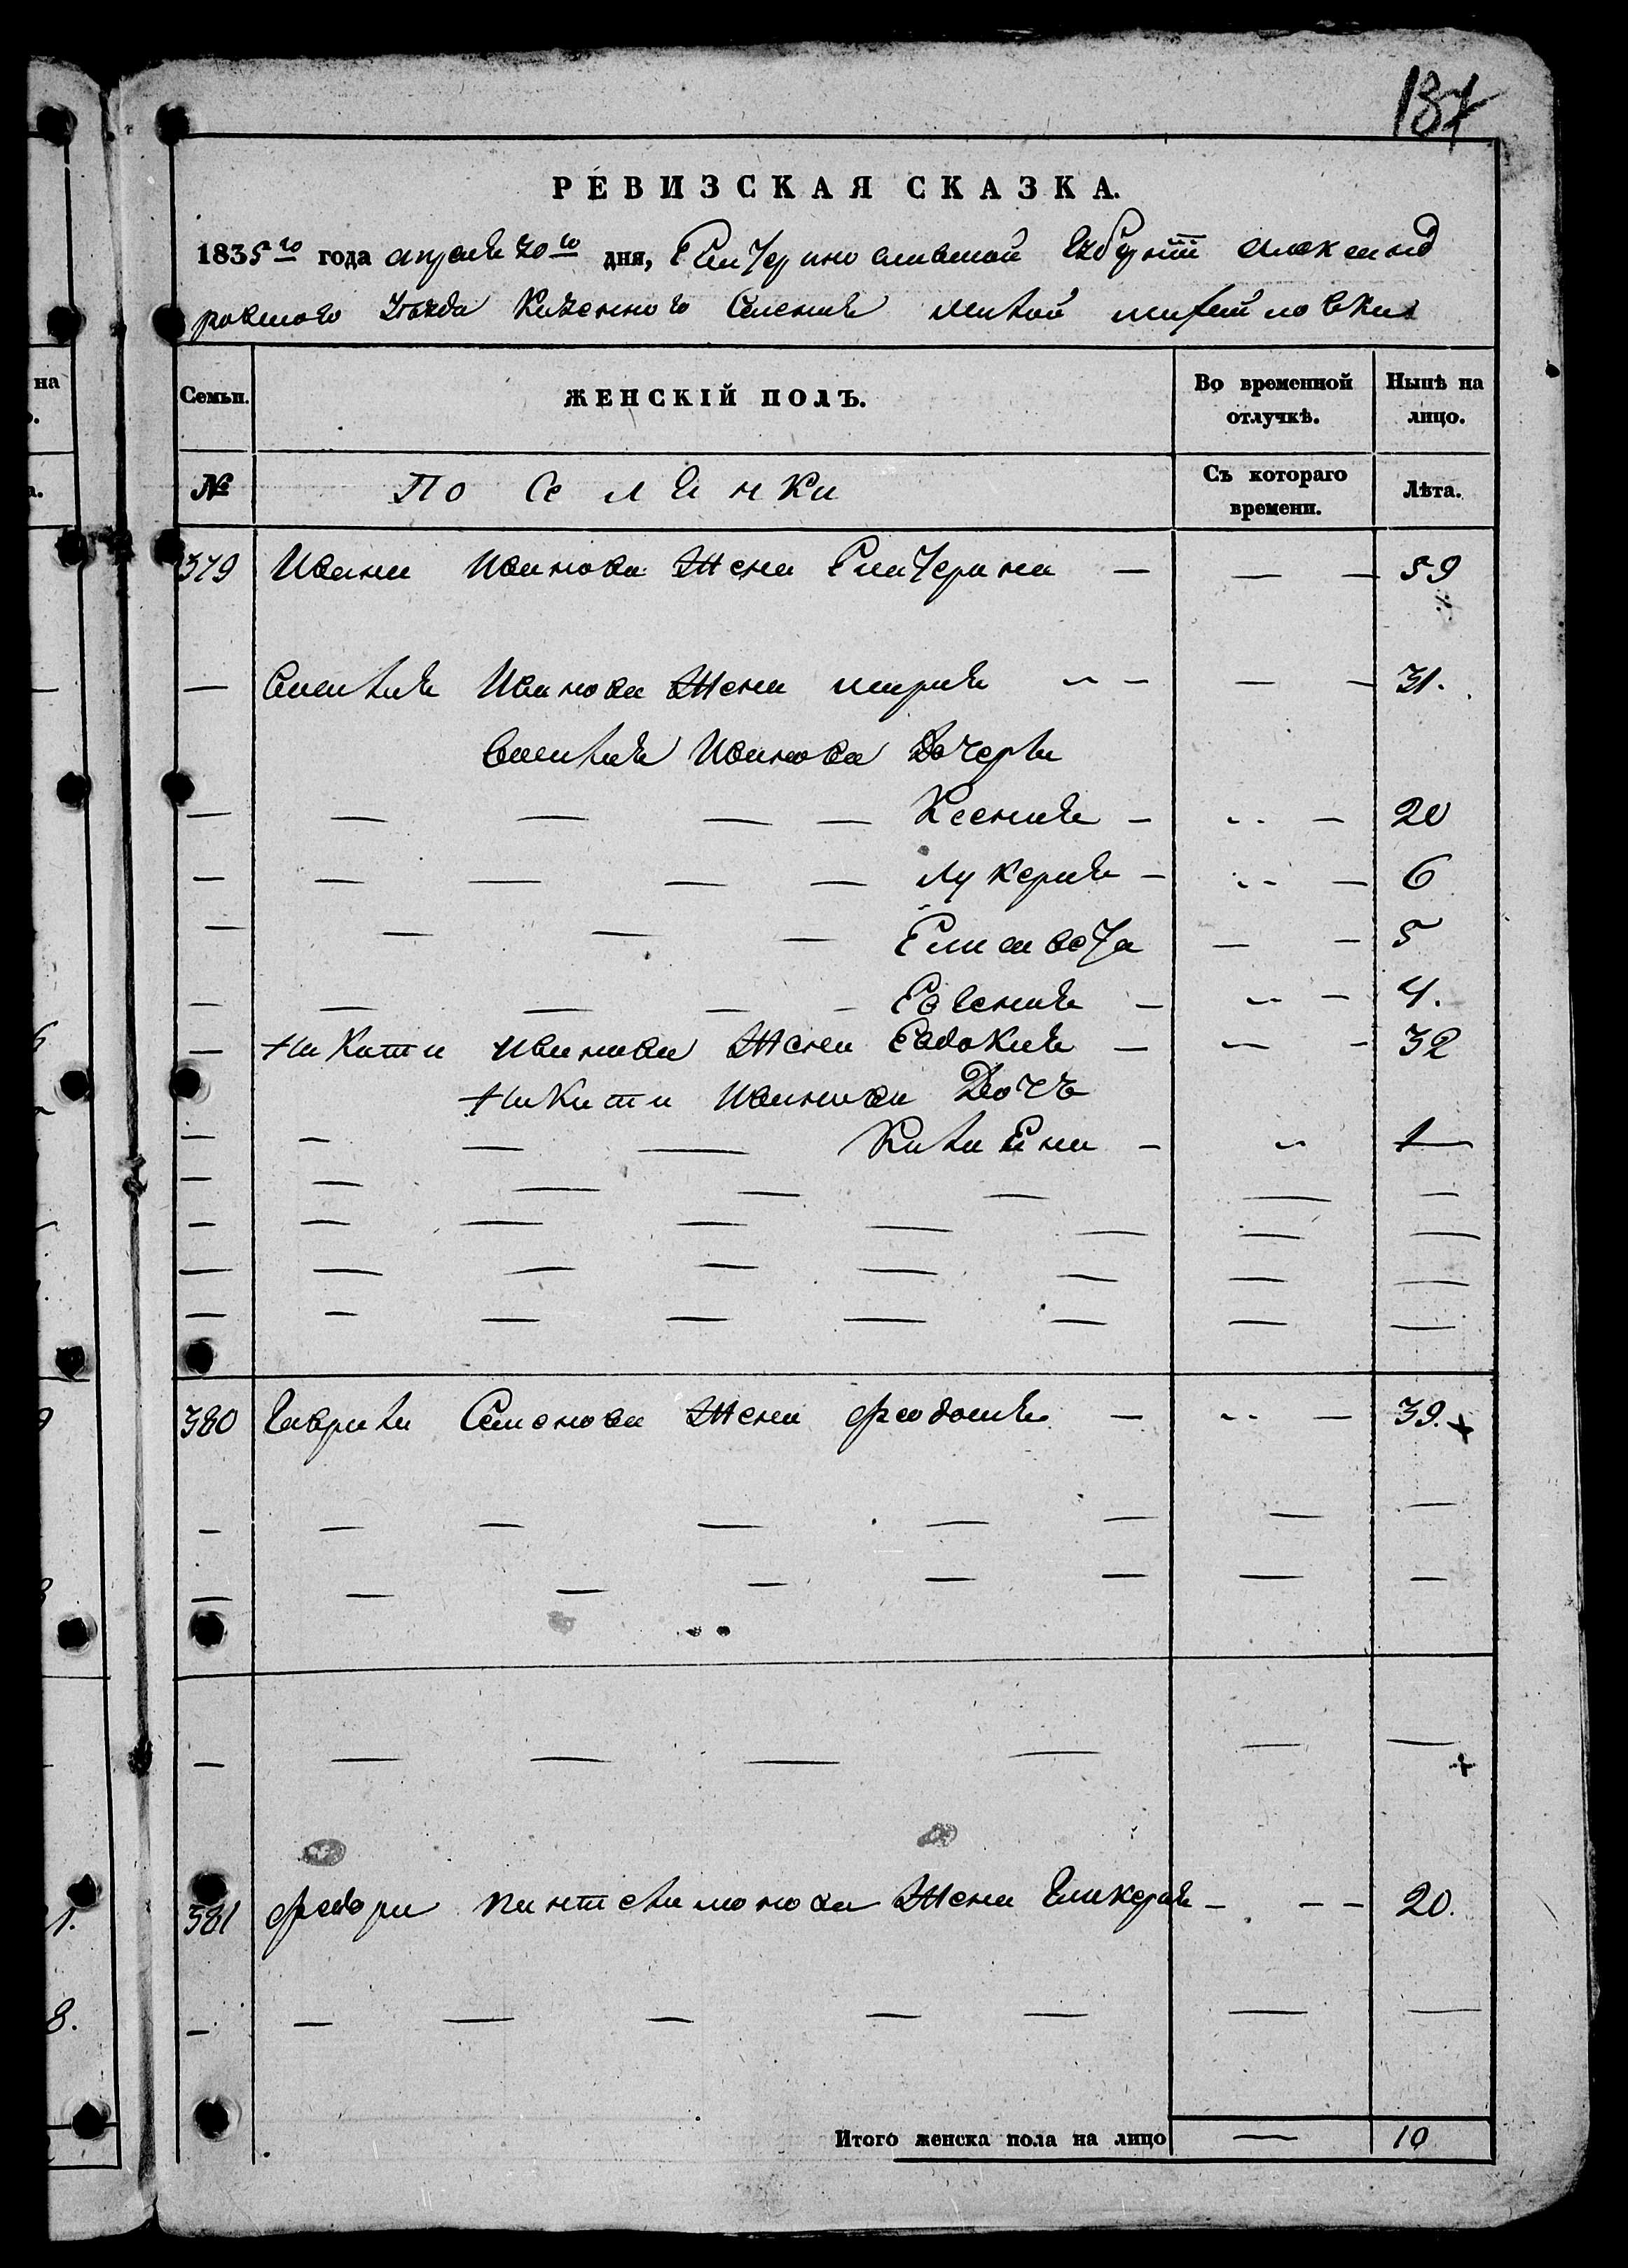 137
РЕВИЗСКАЯ СКАЗКА.
1835 го года апреля 20 го дня, Екатеринославской Губерніи Александ
ровского Уезда Казенного Селения малой михайловки
на
Семьи. ЖЕНСКІЙ ПОЛЪ. Во временной отлучкѣ. Нынѣ на лицо.
№ Поселянки Съ котораго времени. Лѣта.
379 Ивана Иванова Жена Екатерина — — — 59
— Василия Иванова Жена мария — — — 31.
Василия Иванова Дочери
— — — — — Ксения — — 20
— — — — — Лукерия — — 6
— — — — Елисавета — — 5
— — — — — Евгения — — 4.
— Никиты Иванова Жена Евдокия — — — 32
Никиты Иванова Дочь
— — — — Катерина — — 1
380 Гаврила Семенова Жена феодосия — — — 39.
381 федора пантелимонова Жена Гликерия — — — 20.
Итого женска пола на лицо — 10